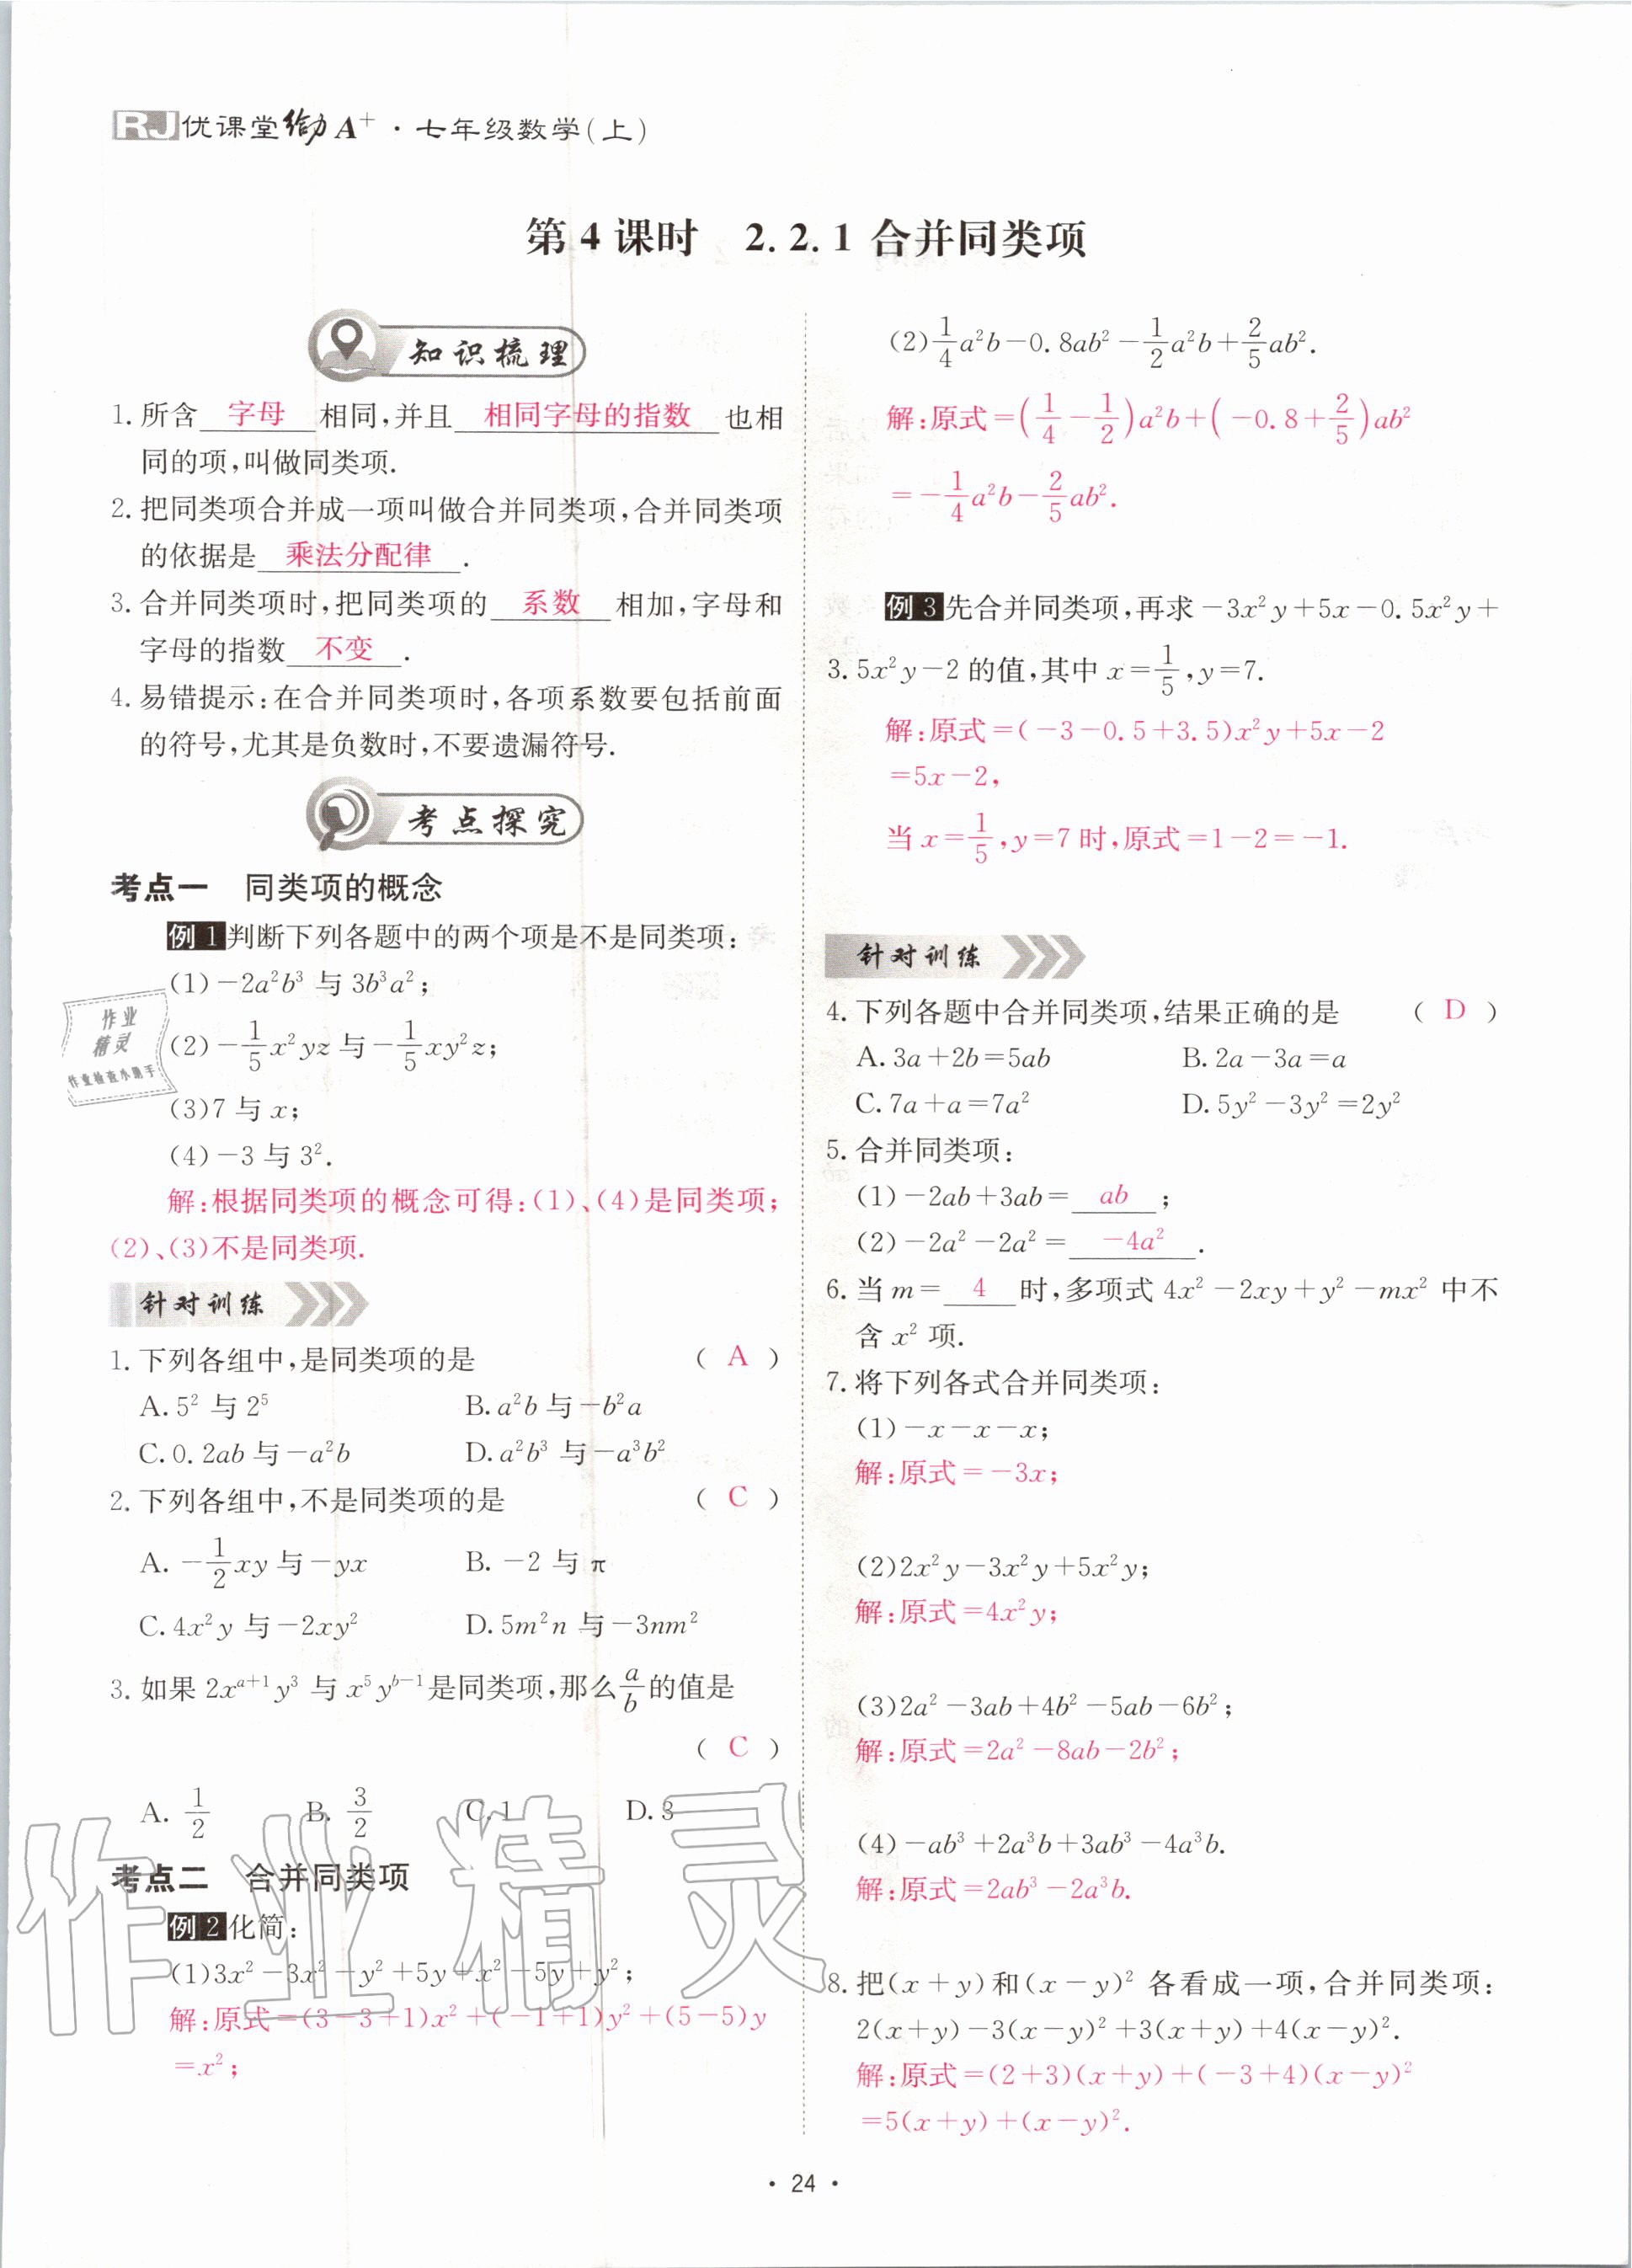 RJ 优课堂给力A⁺·七年级数学(上)
第4课时 2.2.1合并同类项
知识梳理
1. 所含 字母 相同,并且 相同字母的指数 也相
同的项,叫做同类项.
2. 把同类项合并成一项叫做合并同类项,合并同类项
的依据是 乘法分配律 .
3. 合并同类项时,把同类项的 系数 相加,字母和
字母的指数 不变 .
4. 易错提示:在合并同类项时,各项系数要包括前面
的符号,尤其是负数时,不要遗漏符号.
考点探究
考点一 同类项的概念
例1 判断下列各题中的两个项是不是同类项:
(1)-2a²b³ 与 3b³a²;
(2)-1/5 x²yz 与 -1/5 xy²z;
(3)7 与 x;
(4)-3 与 3².
解:根据同类项的概念可得:(1)、(4)是同类项;
(2)、(3)不是同类项.
针对训练
1. 下列各组中,是同类项的是 ( A )
A. 5² 与 2⁵ B. a²b 与 -b²a
C. 0.2ab 与 -a²b D. a²b³ 与 -a³b²
2. 下列各组中,不是同类项的是 ( C )
A. -1/2 xy 与 -yx B. -2 与 π
C. 4x²y 与 -2xy² D. 5m²n 与 -3nm²
3. 如果 2xᵃ⁺¹y³ 与 x⁵yᵇ⁻¹ 是同类项,那么 a/b 的值是
( C )
A. 1/2 B. 3/2 C. 1 D. 3
考点二 合并同类项
例2 化简:
(1)3x²-3x²-y²+5y+x²-5y+y²;
解:原式=(3-3+1)x²+(-1+1)y²+(5-5)y
=x²;
(2)1/4 a²b-0.8ab²-1/2 a²b+2/5 ab².
解:原式=(1/4-1/2)a²b+(-0.8+2/5)ab²
=-1/4 a²b-2/5 ab².
例3 先合并同类项,再求-3x²y+5x-0.5x²y+
3.5x²y-2的值,其中 x=1/5,y=7.
解:原式=(-3-0.5+3.5)x²y+5x-2
=5x-2,
当 x=1/5,y=7 时,原式=1-2=-1.
针对训练
4. 下列各题中合并同类项,结果正确的是 ( D )
A. 3a+2b=5ab B. 2a-3a=a
C. 7a+a=7a² D. 5y²-3y²=2y²
5. 合并同类项:
(1)-2ab+3ab= ab ;
(2)-2a²-2a²= -4a² .
6. 当 m= 4 时,多项式 4x²-2xy+y²-mx² 中不
含 x² 项.
7. 将下列各式合并同类项:
(1)-x-x-x;
解:原式=-3x;
(2)2x²y-3x²y+5x²y;
解:原式=4x²y;
(3)2a²-3ab+4b²-5ab-6b²;
解:原式=2a²-8ab-2b²;
(4)-ab³+2a³b+3ab³-4a³b.
解:原式=2ab³-2a³b.
8. 把(x+y)和(x-y)² 各看成一项,合并同类项:
2(x+y)-3(x-y)²+3(x+y)+4(x-y)².
解:原式=(2+3)(x+y)+(-3+4)(x-y)²
=5(x+y)+(x-y)².
· 24 ·
作业
精灵
作业检查小助手
作业精灵